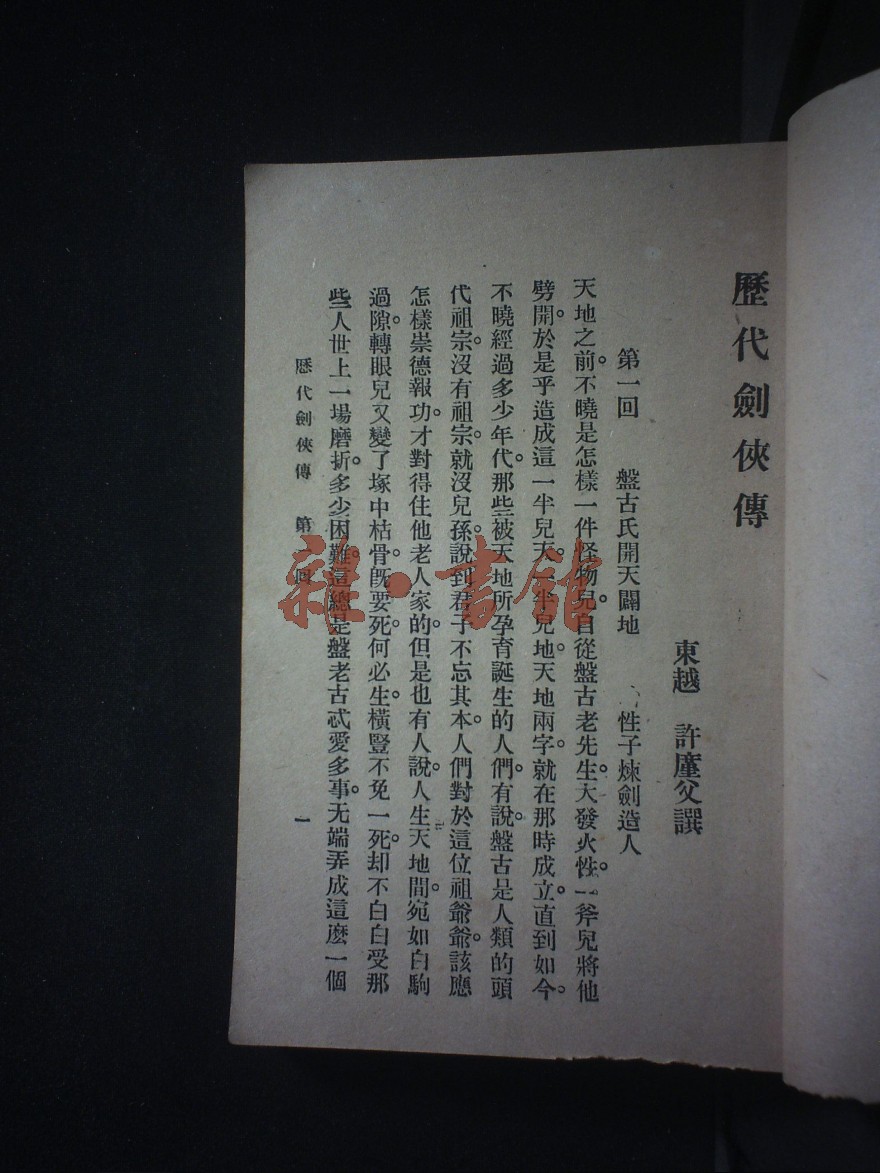 歷代劍俠傳
東越 許廑父譔
第一回 盤古氏開天闢地 性子煉劍造人
天地之前。不曉是怎樣一件怪物兒。自從盤古老先生。大發火性。一斧兒將他
劈開。於是乎造成這一半兒天。一半兒地。天地兩字。就在那時成立。直到如今。
不曉經過多少年代。那些被天地所孕育誕生的人們。有說。盤古是人類的頭
代祖宗。沒有祖宗。就沒兒孫。說到君子不忘其本。人們對於這位祖爺爺。該應
怎樣崇德報功。才對得住他老人家的。但是也有人說。人生天地間。宛如白駒
過隙。轉眼兒又變了塚中枯骨。既要死。何必生。橫豎不免一死。却不白白受那
些人世上一場磨折。多少困難。這總是盤老古忒愛多事。无端弄成這麼一個
歷代劍俠傳 第一回 一
雜·書館